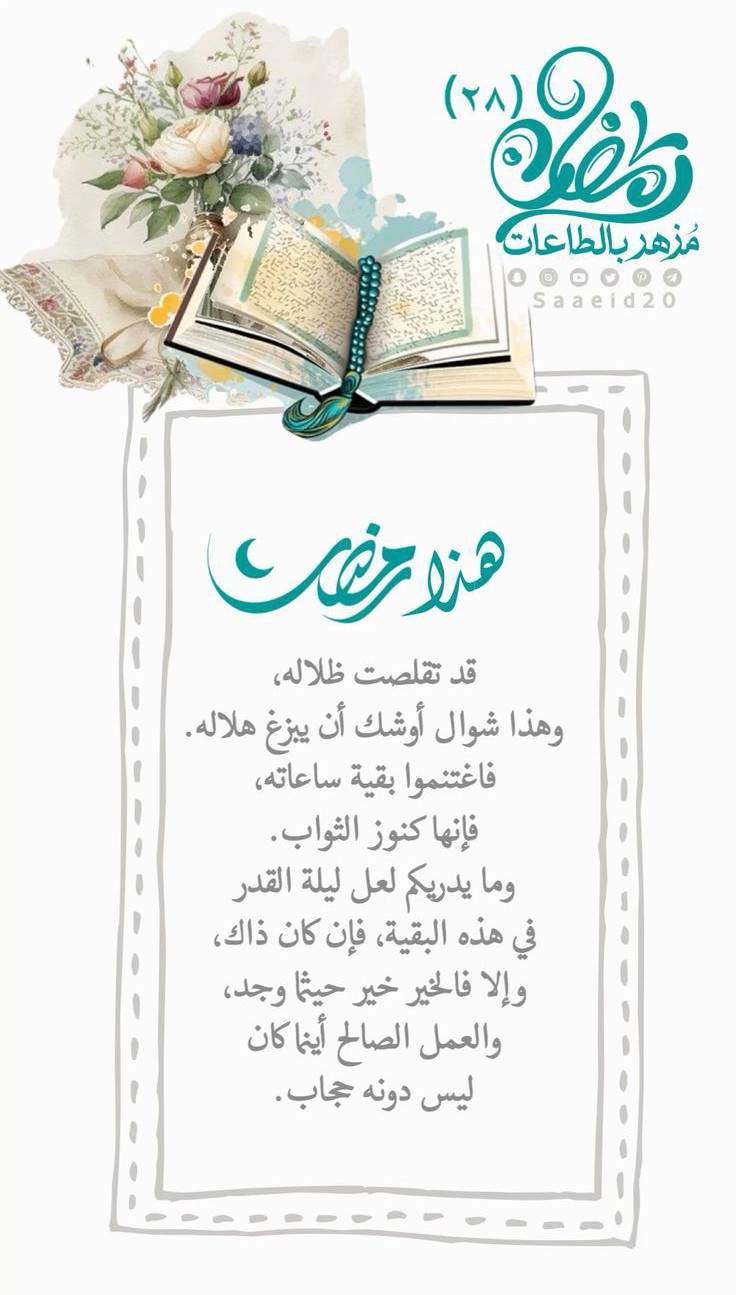 (٢٨)
رمضان
مُزهر بالطاعات
Saaeid20
هذا رمضان
قد تقلصت ظلاله،
وهذا شوال أوشك أن يبزغ هلاله.
فاغتنموا بقية ساعاته،
فإنها كنوز الثواب.
وما يدريكم لعل ليلة القدر
في هذه البقية، فإن كان ذاك،
وإلا فالخير خير حيثما وجد،
والعمل الصالح أينما كان
ليس دونه حجاب.